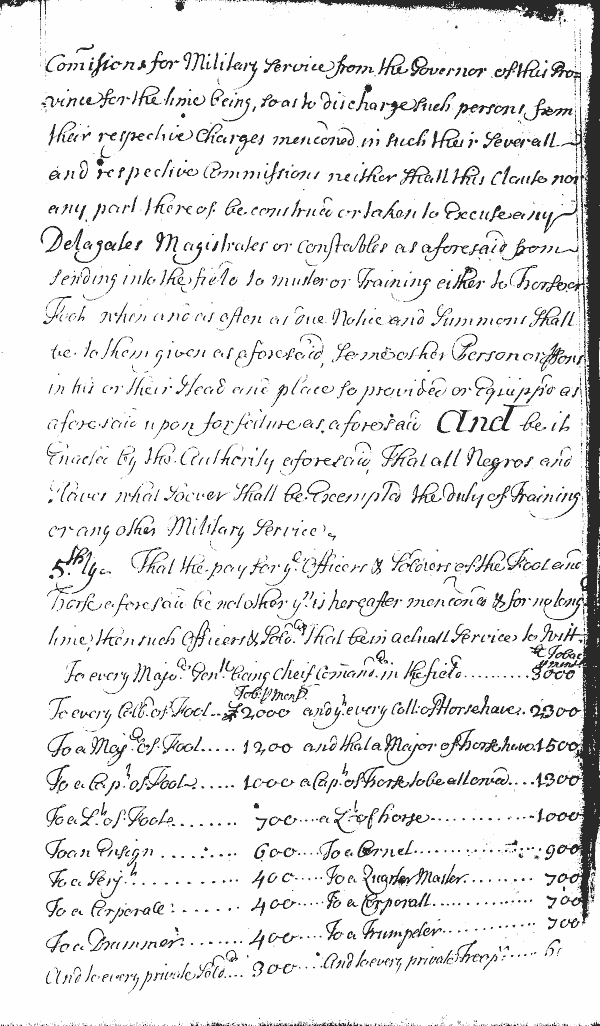 Comisions for Military Service from the Governor of this Pro=
vince for the time being, so as to discharge such persons from
their respective Charges menconed in such their Severall
and respective Commissions neither shall this Clause nor
any part thereof be construed or taken to Excuse any
Delagates Magistrates or Constables as aforesaid from
sending into the field to muster or Training either to horse or
Foot when and as often as due Notice and Summons Shall
be to them given as aforesaid, Some other Person or psons
in his or their Stead and place so provided or Equipp'd as
aforesaid upon forfeiture as aforesaid And be it
Enacted by the Authority aforesaid, That all Negros and
Slaves what soever shall be Exempted the duty of Training
or any other Military Service
5thly That the pay for ye Officers & Soldiers of the Foot and
horse aforesaid be no other yn is hereafter menconed & for no long
time, then such Officers & Sold.rs That be in actuall Service to witt
lb Tobac
p month
To every Majo.r Gen.ll being cheif Comand.r in the field ......... 3000
Tob p Month
To every Coll.o of Foot 2000 and yt every Coll: of Horse have .. 2300
To a Maj.r of Foot ..... 1200 and that a Major of horse have 1500
To a Cap.t of Foot ..... 1000 a Cap.t of Horse to be allowed .... 1300
To a L.t of Foote ....... 700 ... a L.t of horse ............ 1000
To an Ensign ........ 600 ... To a Cornet ............ 900
To a Serj.t ............ 400 ... To a Quarter Master ....... 700
To a Corporall ....... 400 ... To a Corporall .......... 700
To a Drummer ....... 400 ... To a Trumpeter ........ 700
And to every private Sold.r ... 300 ... And to every private Troop.r ....